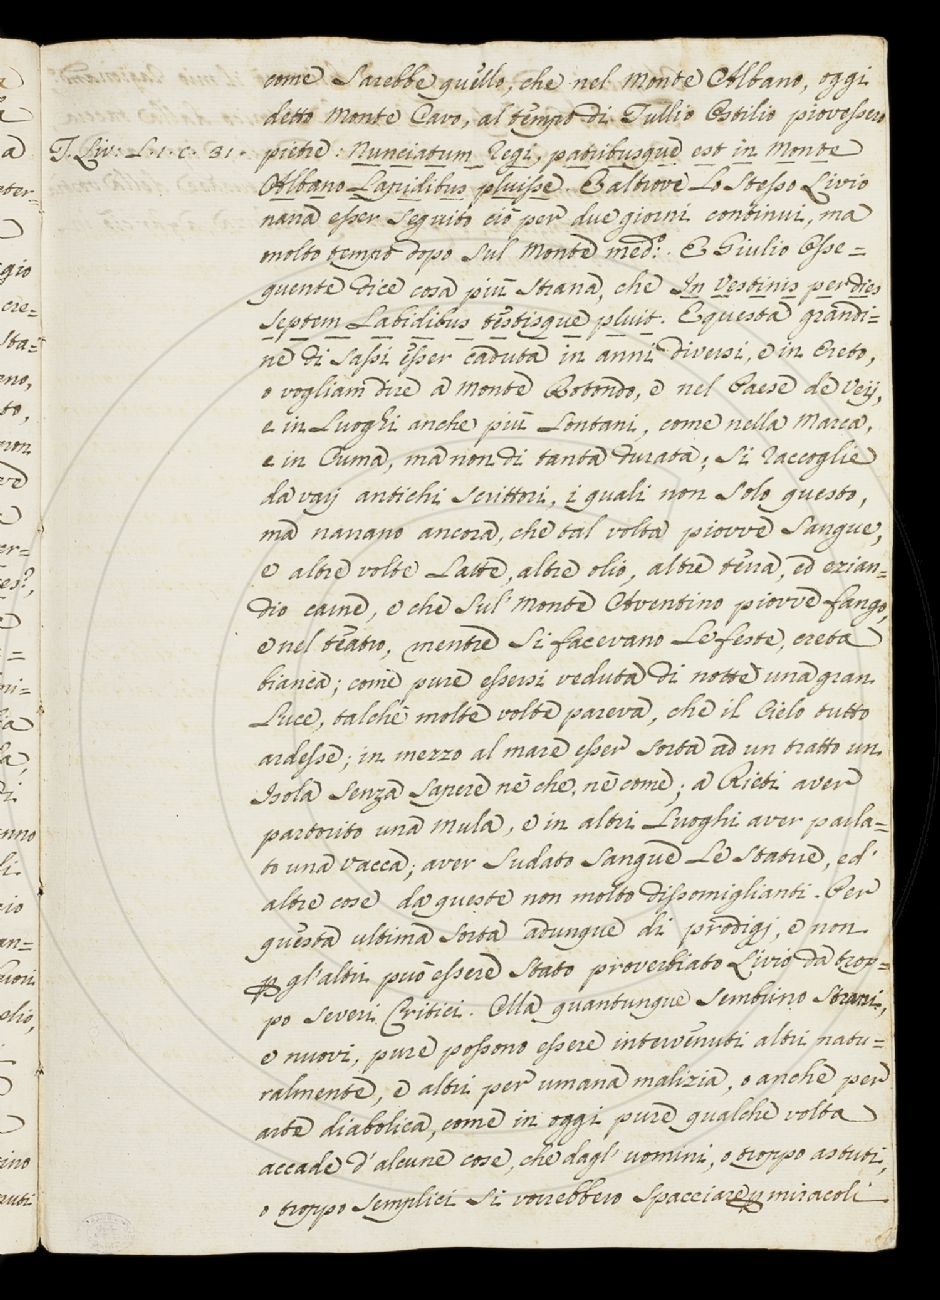 come Sarebbe quello, che nel Monte Albano, oggi
detto Monte Cavo, al tempo di Tullio Ostilio piovessero
T. Liv: L. 1. c. 31.
pietre: Nunciatum Regi, patribusque est in Monte
Albano Lapidibus pluisse. E altrove Lo Stesso Livio
narra esser Seguito ciò per due giorni continui, ma
molto tempo dopo Sul Monte med:º. E Giulio Osse=
quente dice cosa più Strana, che In Vestinis per dies
Septem Labidibus testisque pluit. E questa grandi=
ne di Sassi esser caduta in anni diversi, e in Creto,
o vogliam dire a Monte Rotondo, e nel Paese de Veij,
e in Luoghi anche più Lontani, come nella Marca,
e in Cuma, ma non di tanta durata; Si raccoglie
da varij antichi Scrittori, i quali non Solo questo,
ma narrano ancora, che tal volta piovve Sangue,
e altre volte Latte, altre olio, altre terra, ed ezian=
dio carne, e che Sul Monte Aventino piovve fango,
e nel teatro, mentre Si facevano Le feste, creta
bianca; come pure essersi veduta di notte una gran
Luce, talche molte volte pareva, che il Cielo tutto
ardesse; in mezzo al mare esser Sorta ad un tratto un
Isola Senza Sapere nè che, nè come; a Rieti aver
partorito una Mula, e in altri Luoghi aver parla=
to una Vacca; aver Sudato Sangue Le Statue, ed'
altre cose da queste non molto dissomiglianti. Per
questa ultima Sorta adunque di prodigj, e non
p gl'altri può essere Stato proverbiato Livio da trop=
po Severi Critici. Ma quantunque Sembrino Strani,
e nuovi, pure possono essere intervenuti altri natu=
ralmente, e altri per umana malizia, o anche per
arte diabolica, come in oggi pure qualche volta
accade d'alcune cose, che dagl' uomini, o troppo astuti,
o troppo Semplici Si vorrebbero Spacciare p miracoli